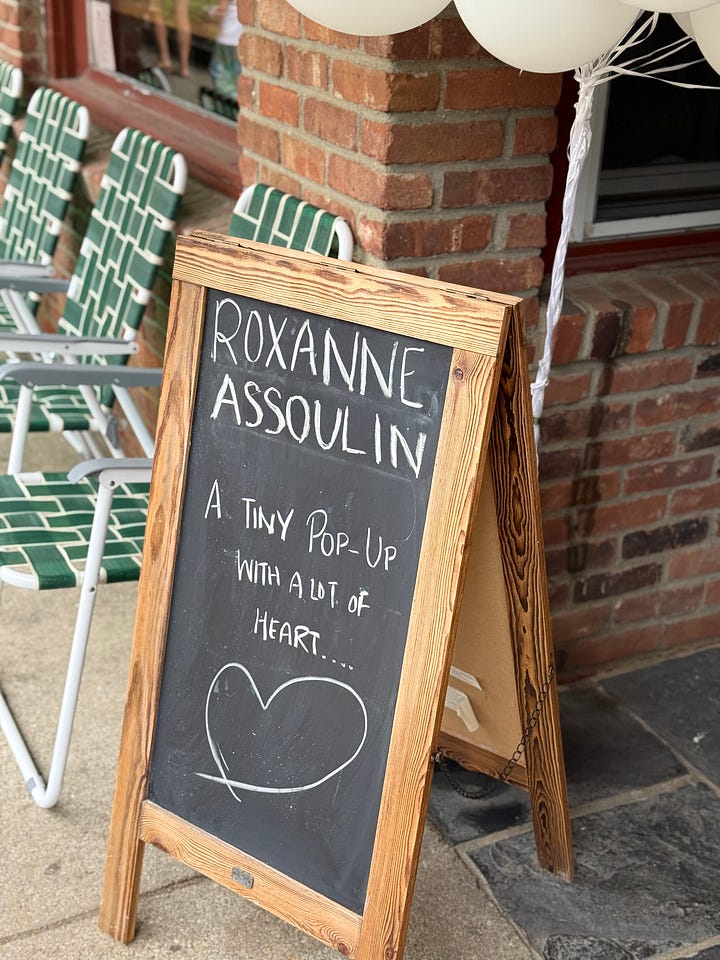 ROXANNE
ASSOULIN
A TINY POP-UP
WITH A LOT OF
HEART....